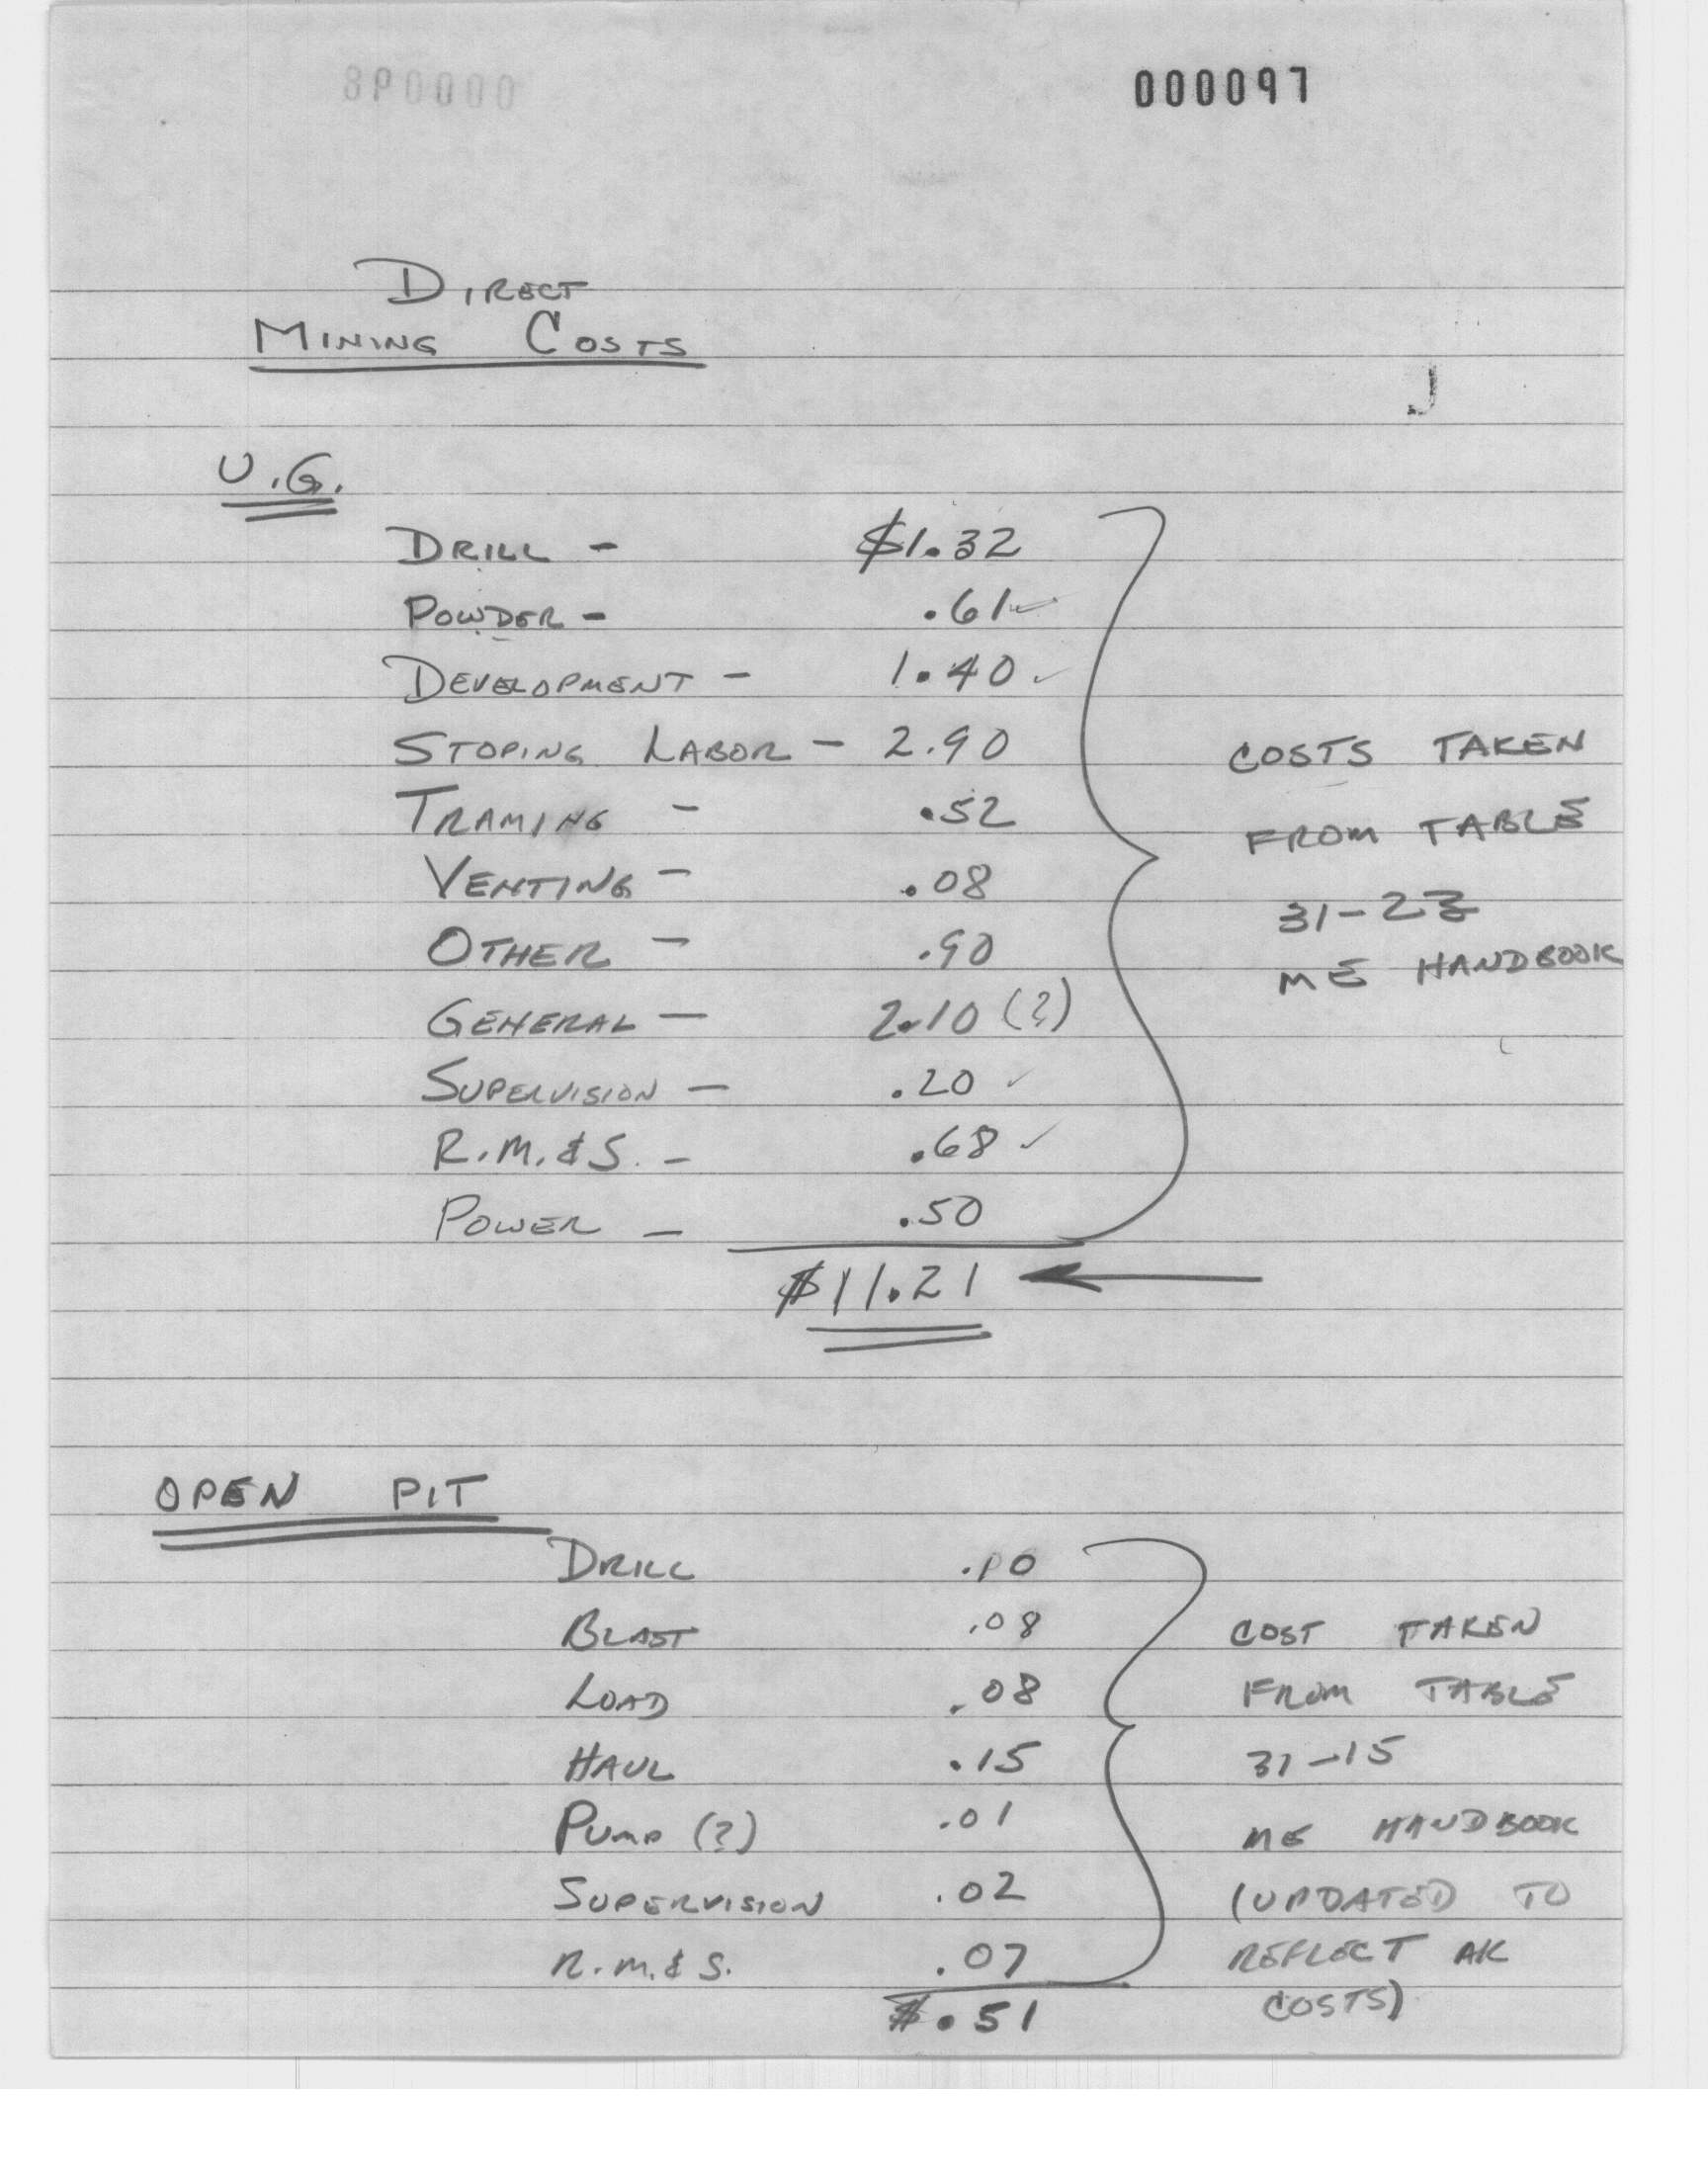 000097
DIRECT
MINING COSTS
U.G.
DRILL - $1.32
POWDER - .61 ✓
DEVELOPMENT - 1.40 ✓
STOPING LABOR - 2.90
TRAMING - .52
VENTING - .08
OTHER - .90
GENERAL - 2.10 (?)
SUPERVISION - .20 ✓
R.M.&S. - .68 ✓
POWER - .50
$11.21
COSTS TAKEN
FROM TABLE
31-23
ME HANDBOOK
OPEN PIT
DRILL .10
BLAST .08
LOAD .08
HAUL .15
PUMP (?) .01
SUPERVISION .02
R.M.&S. .07
$.51
COST TAKEN
FROM TABLE
31-15
ME HANDBOOK
(UPDATED TO
REFLECT AK
COSTS)